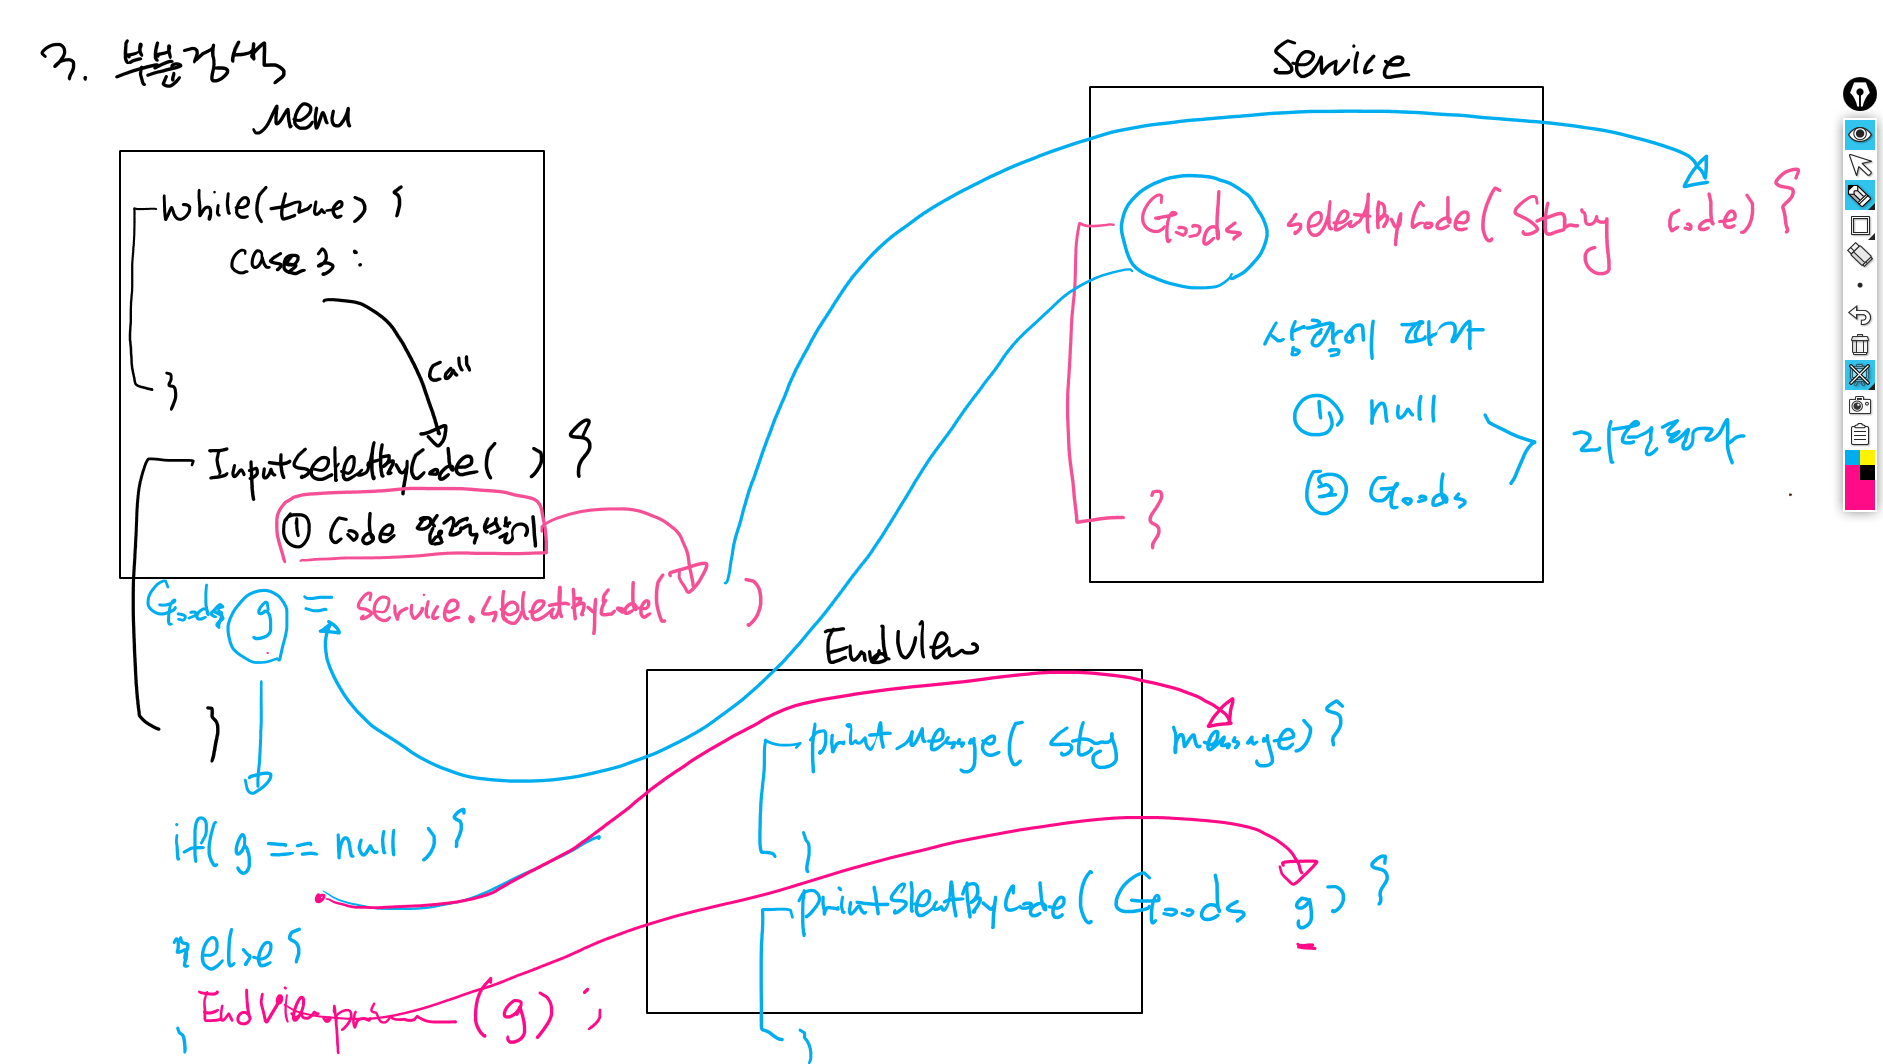 3. 부분검색
Menu
while(true) {
case 3 :
}
call
InputSelectByCode( ) {
① Code 입력받기
Goods g = service.selectByCode( )
}
if( g == null ) {
}else{
EndView.prin (g) ;
}
Service
Goods selectByCode( String code) {
상황에 따라
① null
② Goods
리턴한다
}
EndView
printMessage( String message) {
}
printSlectByCode( Goods g) {
}